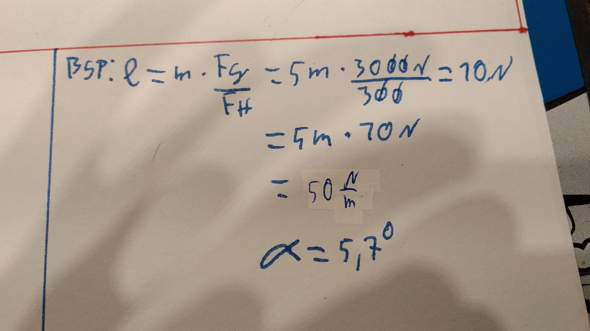 BSP: l = m · Fg/FH = 5m · 3000N/300 = 10N
= 5m · 10N
= 50 N/m
α = 5,7°